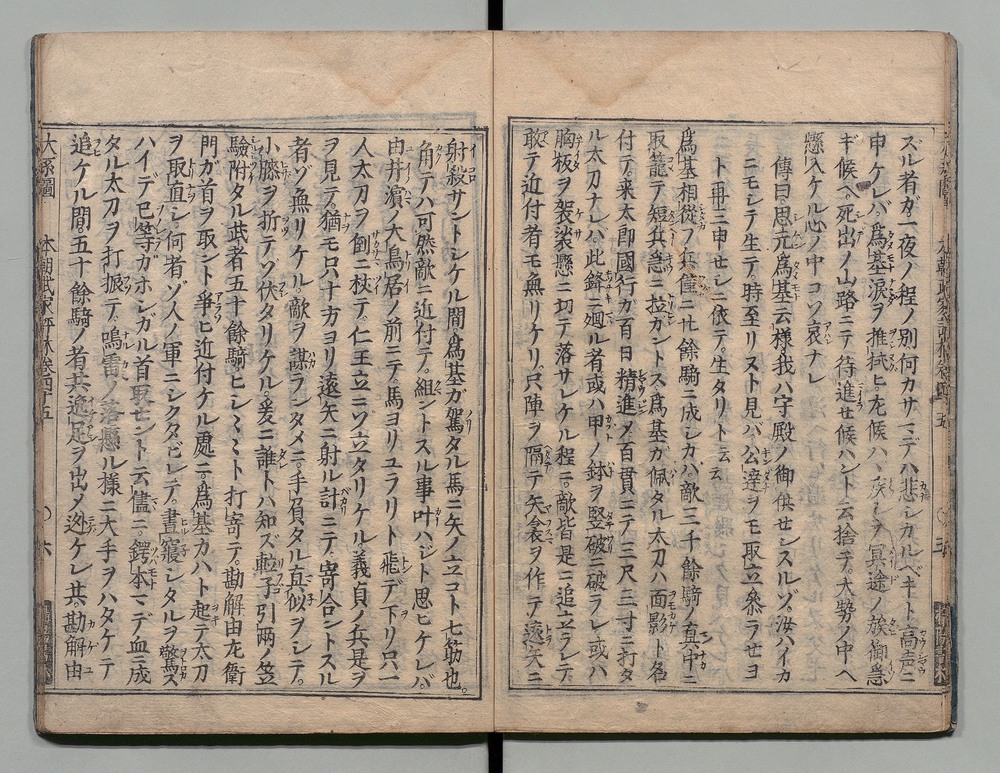 スル者ガ一夜ノ程ノ別何カサマデハ悲シカルベキト高声ニ
申ケレバ、為基涙ヲ推拭ヒ左候ハヽ疾シテ冥途ノ旅御急
ギ候ヘ。死出ノ山路ニテ待進セ候ハント云捨テ。大勢ノ中ヘ
懸入ケル心ノ中コソ哀ナレ
傳曰。思元為基云様我ハ守殿ノ御供センスルゾ。汝ハイカ
ニモシテ生テ時至リヌト見バ。公達ヲモ取立参ラセヨ
ト再三申セシニ依テ。生タリト云云
為基相從フ兵僅ニ廿餘騎ニ成シカバ敵三千餘騎ノ真中ニ
取籠テ短兵急ニ拉カントス為基カ佩タル太刀ハ面影ト名
付テ。来太郎國行ガ百日精進メ百貫ニテ三尺三寸ニ打タ
ル太刀ナレバ。此鋒ニ廻ル者或ハ甲ノ鉢ヲ竪破ニ破ラレ或ハ
胸板ヲ袈裟懸ニ切テ落サレケル程ニ。敵皆是ニ追立ラレテ。
敢テ近付者モ無リケリ。只陣ヲ隔テ矢衾ヲ作テ遠矢ニ
大系圖　本朝武家評林巻四十五　〇　六
射殺サントシケル間。為基ガ駕タル馬ニ矢ノ立コト七筋也。
角テハ可然敵ニ近付テ。組ントスル事叶ハジト思ヒケレバ。
由井濱ノ大鳥居ノ前ニテ。馬ヨリユラリト飛デ下リ只一
人太刀ヲ倒ニ杖テ。仁王立ニゾ立タリケル義貞ノ兵是ヲ
ヲ見テ。猶モ只十方ヨリ遠矢ニ射ル計ニテ。寄合ントスル
者ゾ無リケル。敵ヲ謀ランタメニ。手負タル真似ヲシテ。
小膝ヲ折テゾ伏タリケル。爰ニ誰トハ知ズ輪子引両ノ笠
驗附タル武者五十餘騎ヒシミミト打寄テ。勘解由左衛
門ガ首ヲ取ント爭ヒ近付ケル處ニ。為基カハト起テ太刀
ヲ取直シ。何者ゾ人ノ軍ニシクタビレテ。晝寝シタルヲ驚ス
ハイデ己等ガホシガル首取セント云儘ニ。鍔本マデ血ニ成
タル太刀ヲ打振テ。鳴雷ノ落懸ル様ニ大手ヲハタケテ
追ケル間。五十餘騎ノ者共逸足ヲ出ノ迯ケレ共。勘解由